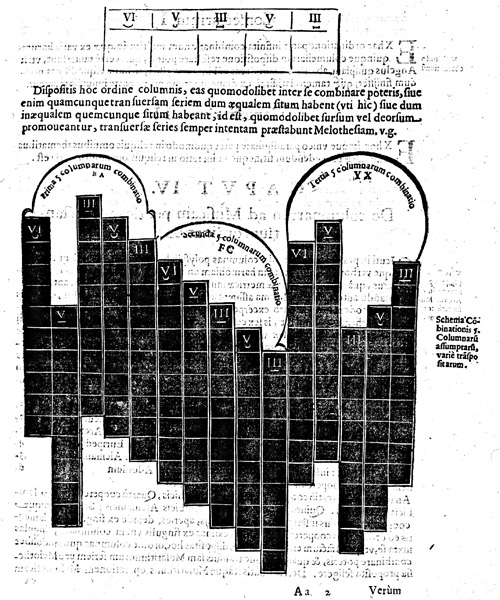 VI V III V III
Dispositis hoc ordine columnis, eas quomodolibet inter se combinare poteris, siue
enim quamcunque transuersam seriem dum æqualem situm habent (vti hic) siue dum
inæqualem quemcunque sitūm habeant, id est, quomodolibet sursum vel deorsum
promoueantur, transuersæ series semper intentam præstabunt Melothesiam, v.g.
Prima 5 columnarum combinatio
BA
VI V III V III
Secunda 5 columnarum combinatio
FC
VI V III V III
Tertia 5 columnarum combinatio
YX
VI V III V III
Schema Cō-
binationis 5.
Columnarū
assumptarū,
variè trāspo
sitarum.
Aa 2 Verùm